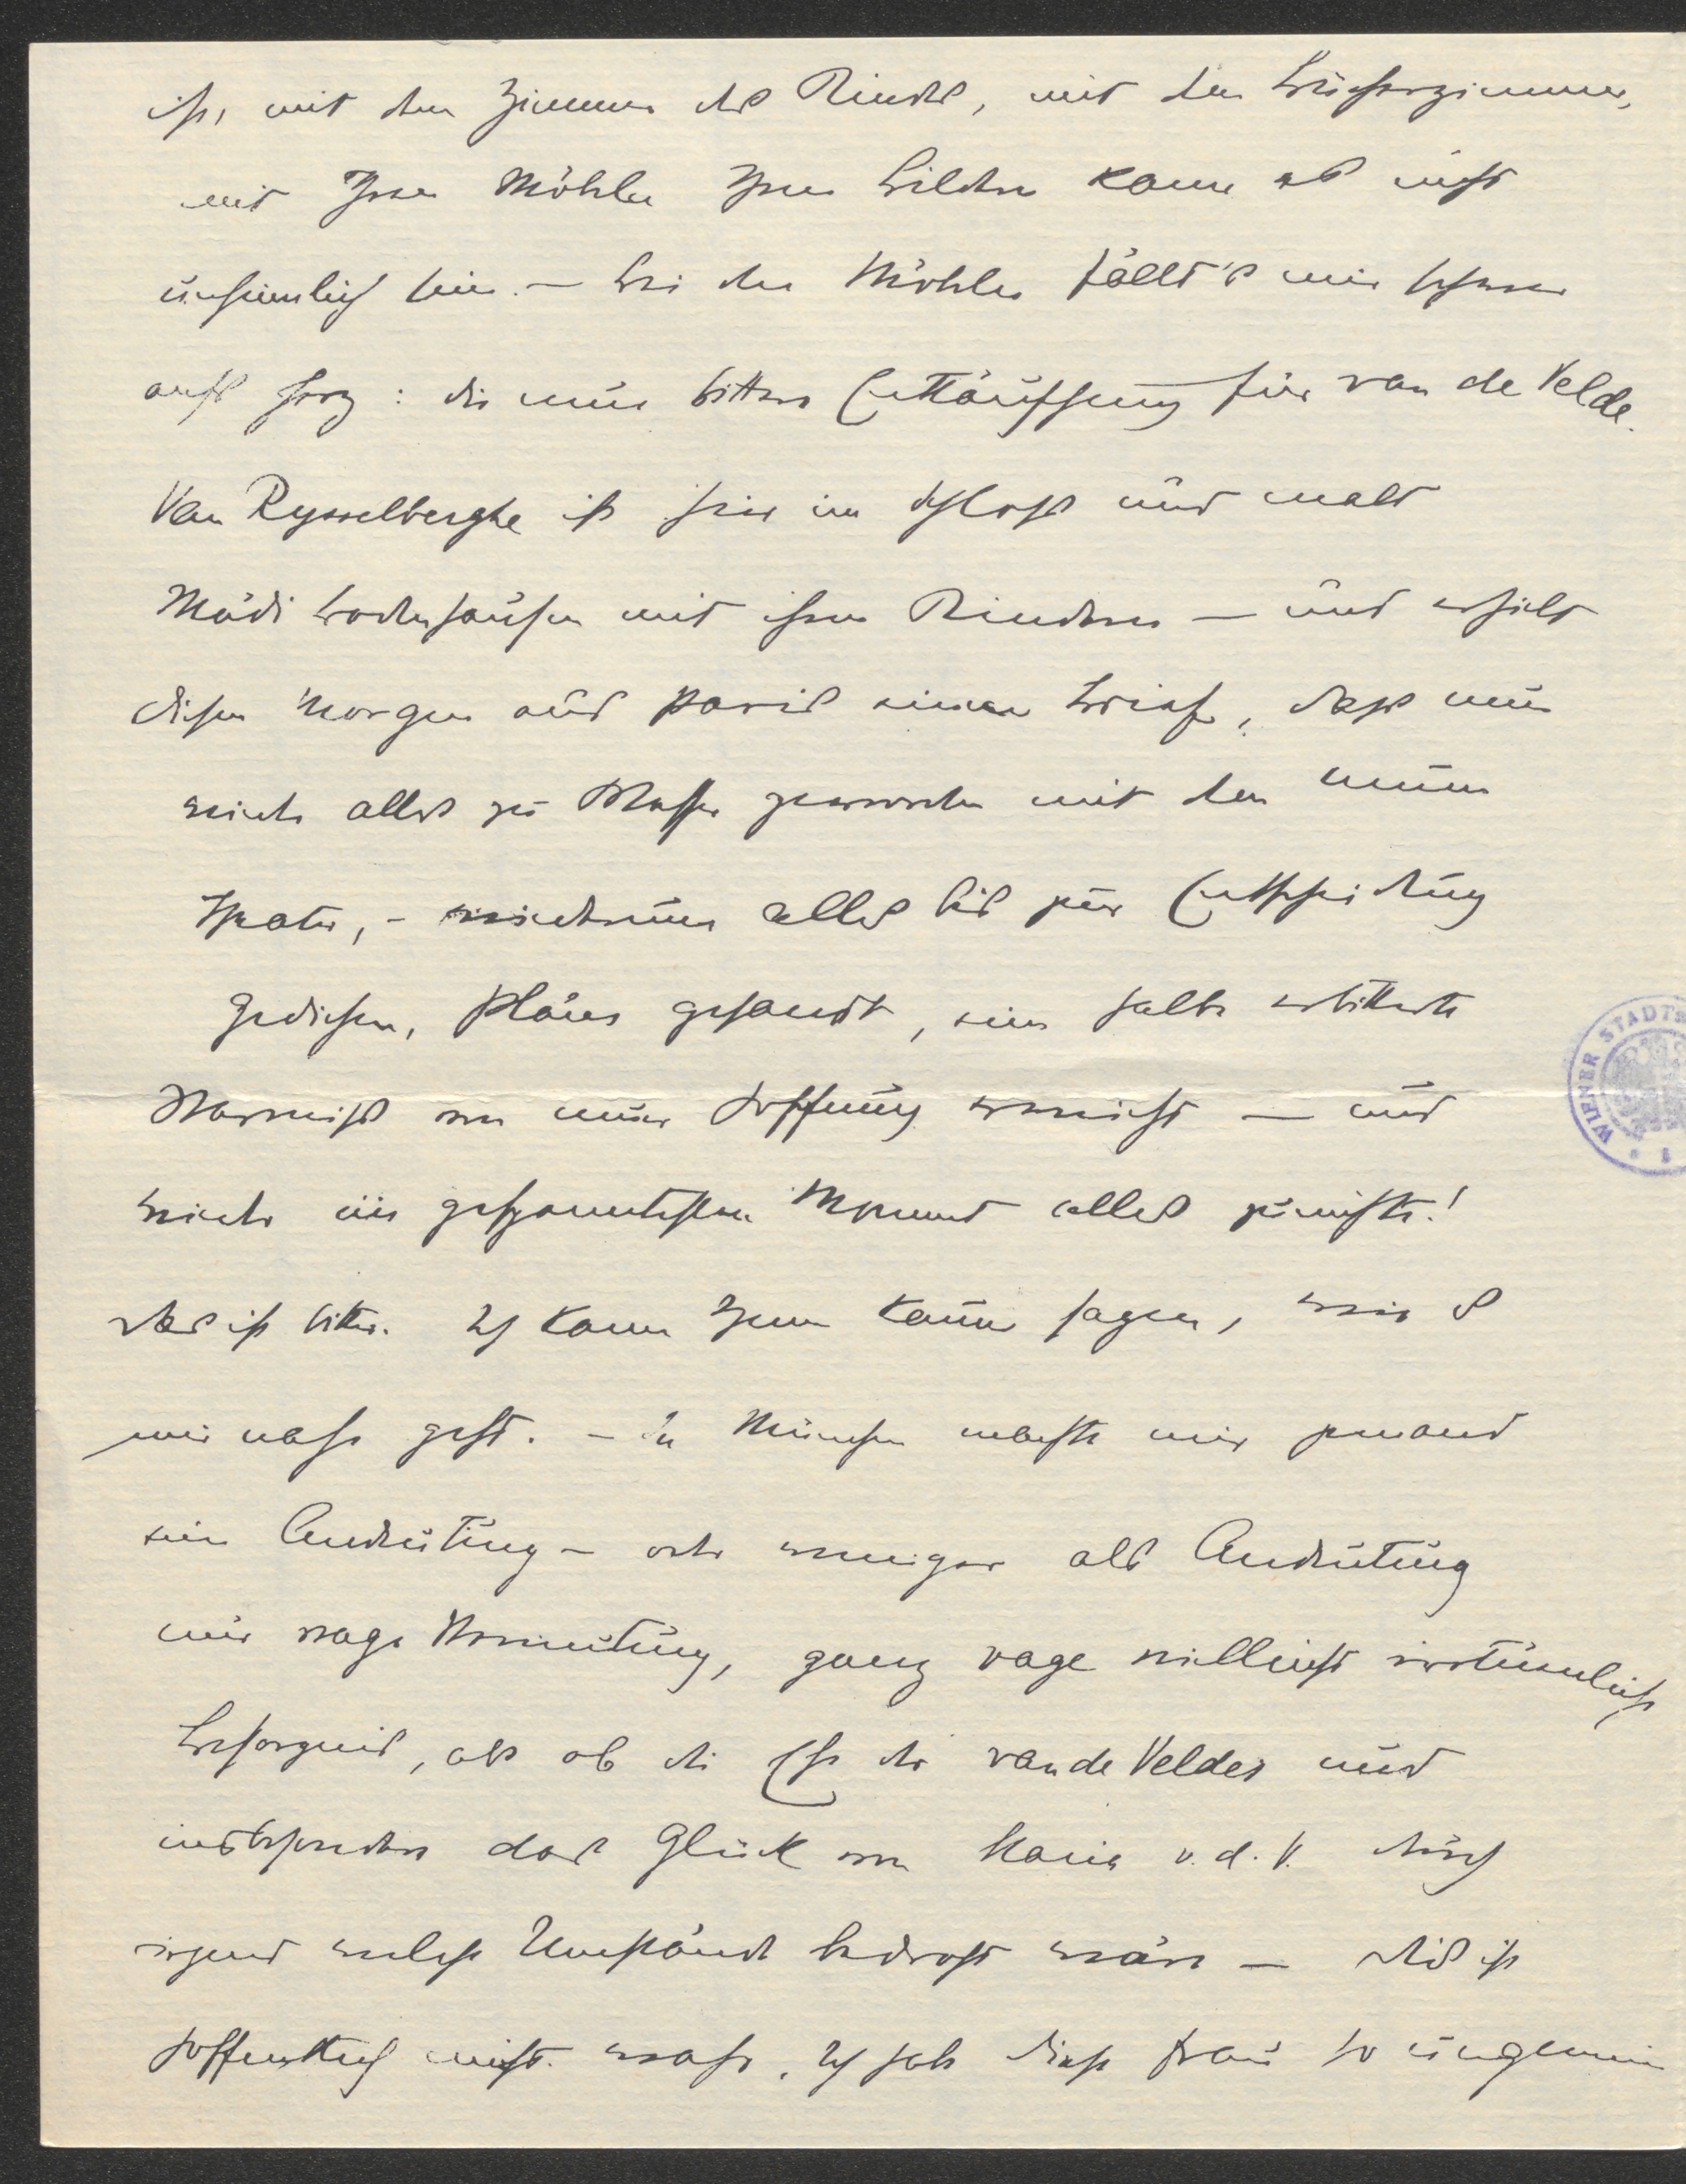 ist, mit dem Zimmer des Kindes, mit dem Bücherzimmer,
mit Ihren Möbeln Ihren Bildern kann es nicht
unheimlich sein. – Bei den Möbeln fällt's mir schwer
aufs Herz: die neue bittere Enttäuschung für van de Velde.
Van Rysselberghe ist hier im Schloss und malt
Mädi Bodenhausen mit ihren Kindern – und erhielt
diesen Morgen aus Paris einen Brief, dass nun
wieder alles zu Wasser geworden mit dem neuen
Theater, – wiederum alles bis zur Entscheidung
Gediehen, Pläne gesandt, eine halbe erbitterte
von neuer Hoffnung erweicht – und
wieder im gespanntesten Moment alles zunichte!
das ist bitter. Ich kann Ihnen kaum sagen, wie es
mir nahe geht. – In München machte mir jemand
eine Andeutung – oder weniger als Andeutung
nur vage Vermutung, ganz vage vielleicht irrtümliche
Besorgnis, als ob die Ehe der van de Veldes und
insbesondere das Glück von Maria v. d. V. durch
irgend welche Umstände bedroht wäre – dies ist
hoffentlich nicht wahr. Ich habe diese Frau so ungemein
WIENER STADTS